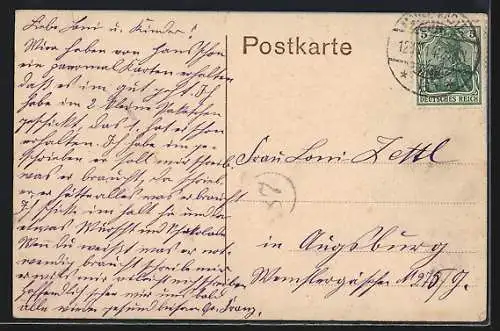 Liebe Loni u. Kinder!
Wir haben von Hans schon
ein paarmal Karten erhalten
daß es im gut geht. Ich
habe im 2 kleine Paketchen
geschickt, das 1. hat er schon
erhalten. Ich habe im ge-
schrieben er soll mir schreib.
was er braucht, da schrieb
er er hätte alles was er braucht
Ich schickte im halt so und so
etwas Wurst und Schokolade
Wenn Du weißt was er not-
wendig braucht schreib mir
er mir nicht schreiben
Hoffentlich sehen wir uns bald
alle wieder gesund Franz.
Postkarte
DEUTSCHES REICH
5 5
Frau Loni Zettl
in Augsburg